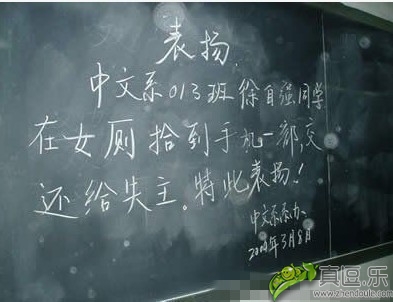 表扬
中文系013班徐自强同学
在女厕拾到手机一部,交
还给失主。特此表扬!
中文系系办
3月8日
真逗.乐
www.zhendoule.com